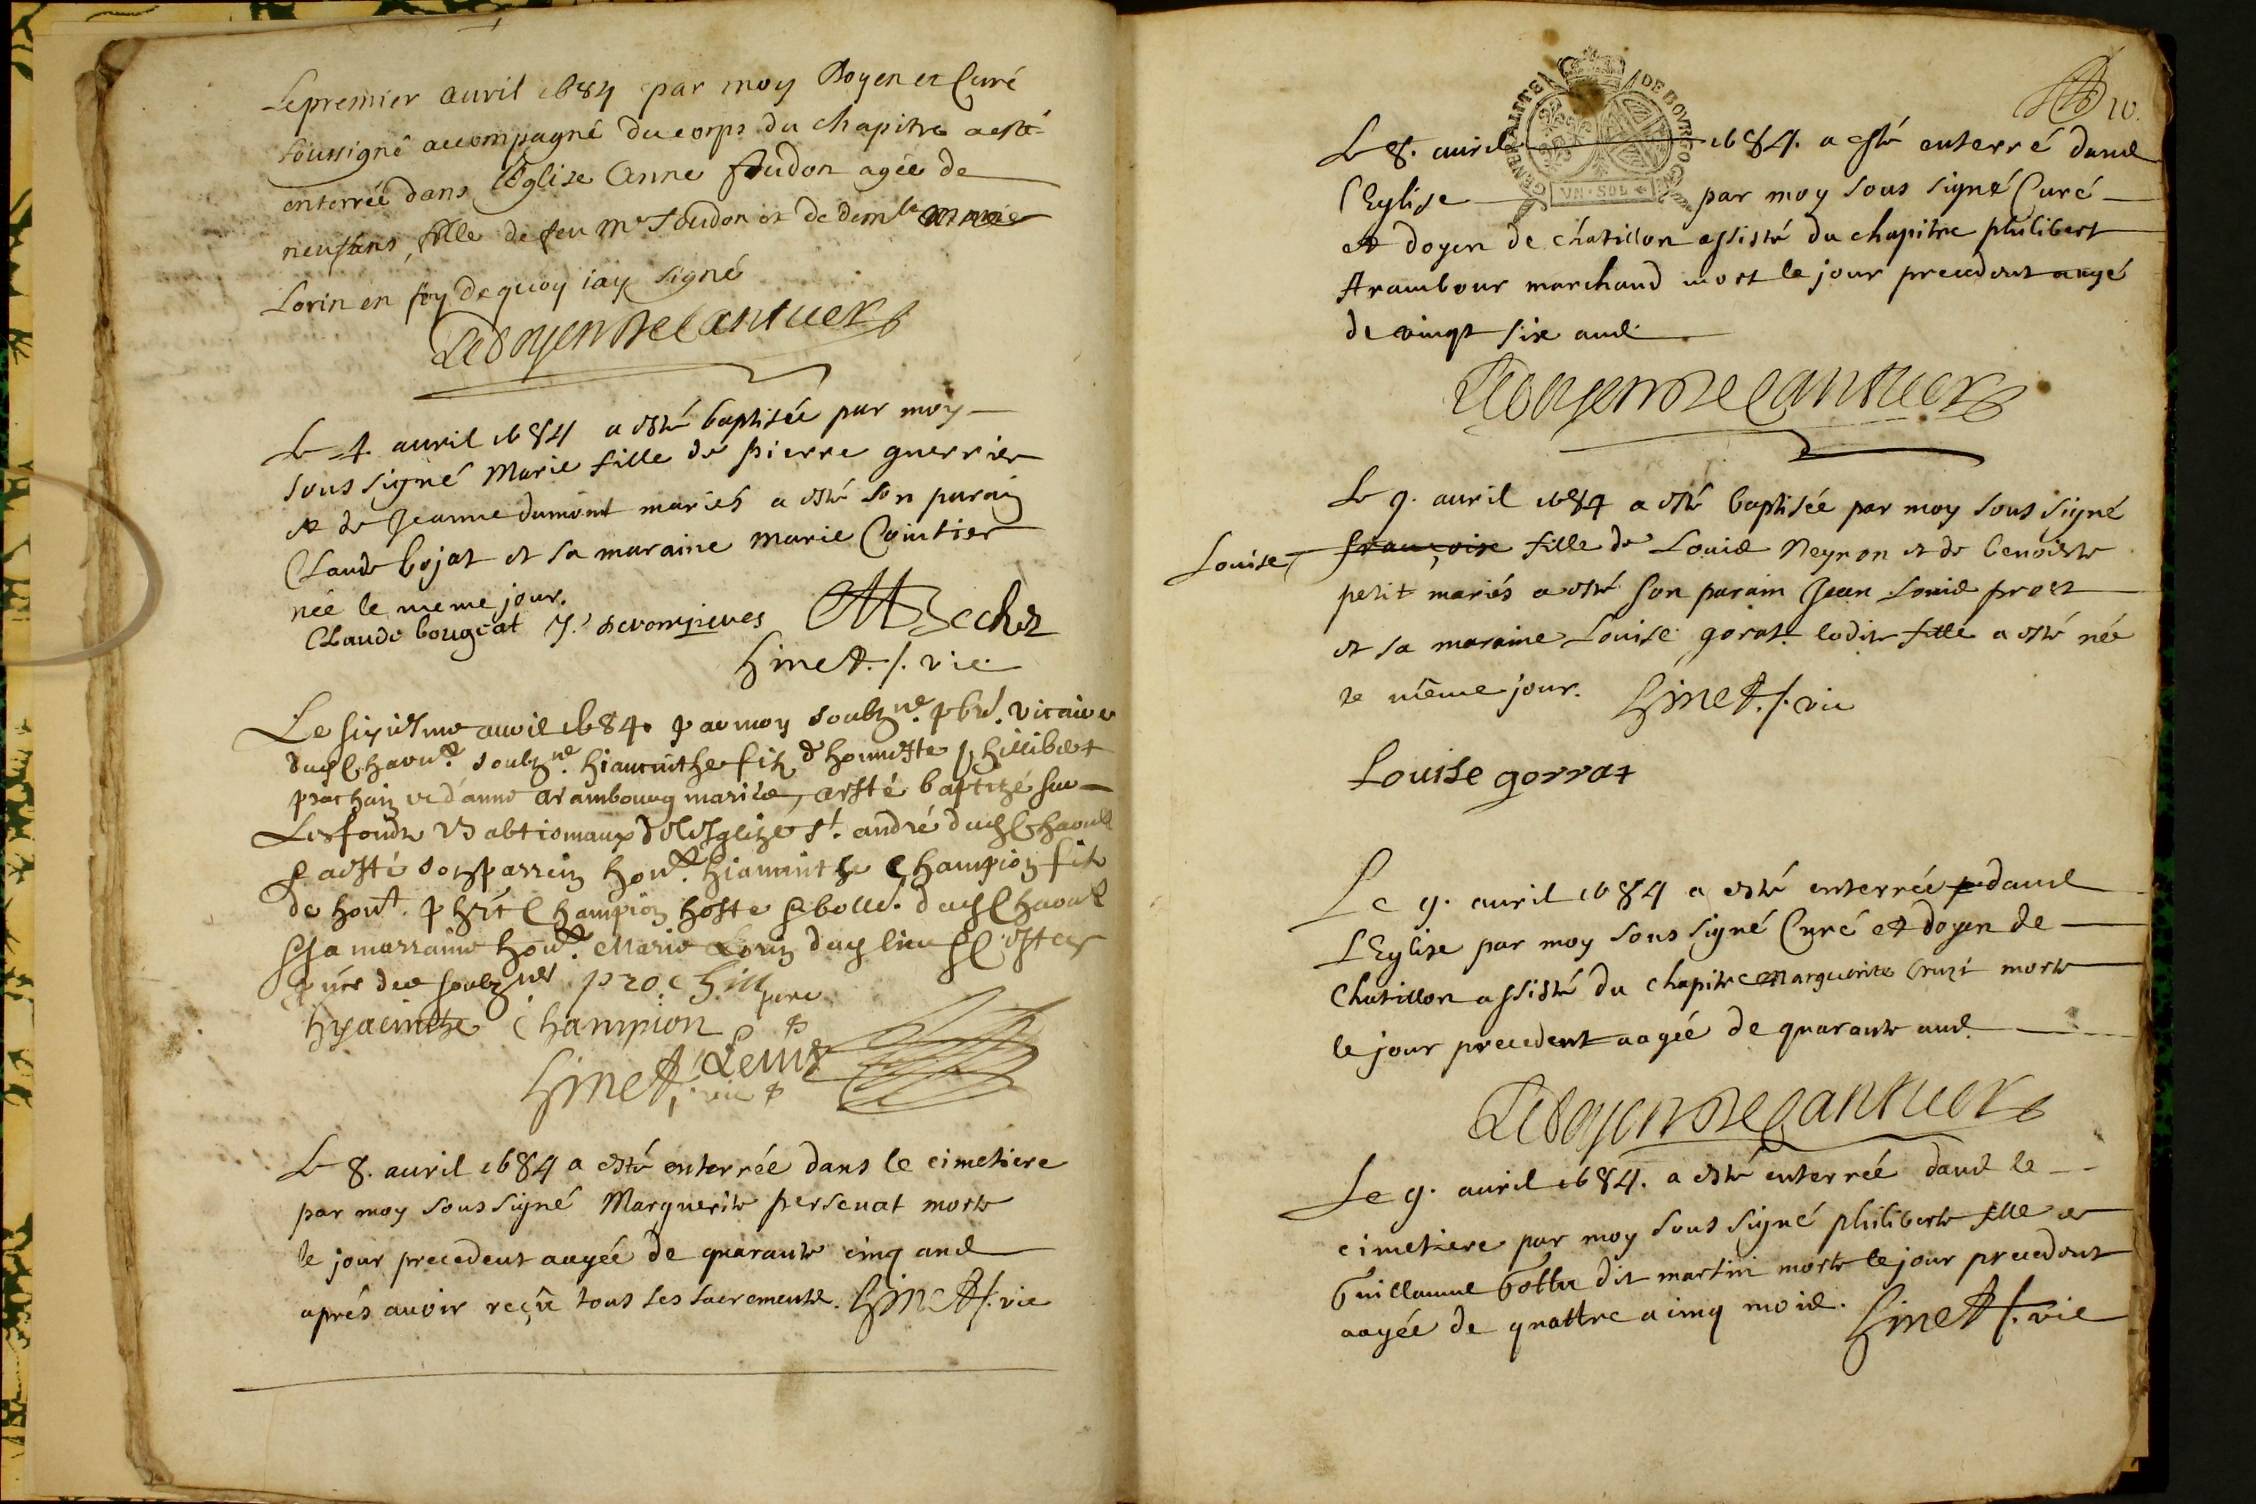 Le premier avril 1684 par moy Doyen et Curé
soussigné accompagné du corps du chapitre a esté
enterrée dans l'Eglise Anne agée de
neuf ans, fille de feu Mr et de demlle
Lorin en foy de quoy iay signé
Ledoyen
Le 4. avril 1684 a esté baptisée par moy
sous signé Marie fille de pierre guerrier
et de Jeanne dumont mariés a esté son parain
Claude bojat et sa maraine Marie Cointier
née le meme jour.
Claude bougeat
hinet./. vic
Le sixiesme avril 1684. par moy soubzne. pbre. vicaire
soubzne. hiaccinthe filz d'honneste phillibert
prochain et d'anne arambourg mariés, a esté baptizé sur
Les fondz babtismaux de l'esglize St. andré
a esté son parrein hont. hiaccinthe Champion filz
de hont. Champion hoste
& sa marraine hont. Marie Lorin lieu
soubznes prochin
hyacinthe Champion
hinet, vic
Le 8. avril 1684 a esté enterrée dans le cimetiere
par moy sous signé Marguerite persenat morte
le jour precedent aagée de quarante cinq ans
aprés avoir reçû tous ses sacrements. hinet./. vic
10.
GENERALITE DE BOVRGOGNE
VN·SOL
Le 8. avril 1684. a esté enterré dans
l'Eglise par moy sous signé Curé
et doyen de chatillon assisté du chapitre philibert
Arambour marchand mort le jour precedent aagé
de vingt six ans
Ledoyen
Le 9. avril 1684 a esté baptisée par moy sous signé
Louise françoise fille de Louis Neyron et de benoiste
petit mariés a esté son parain Jean Louis prost
et sa maraine Louise gorat. ladite fille a esté née
le même jour. hinet./. vic
Louise gorrat
Le 9. avril 1684 a esté enterrée p dans
L'Eglise par moy sous signé Curé et doyen de
Chatillon assisté du chapitre Marguerite morte
le jour precedent aagée de quarante ans
Ledoyen
Le 9. avril 1684. a esté enterrée dans le
cimetiere par moy sous signé philiberte fille de
Guillaume dit martin morte le jour precedent
aagée de quattre a cinq mois. hinet./. vic